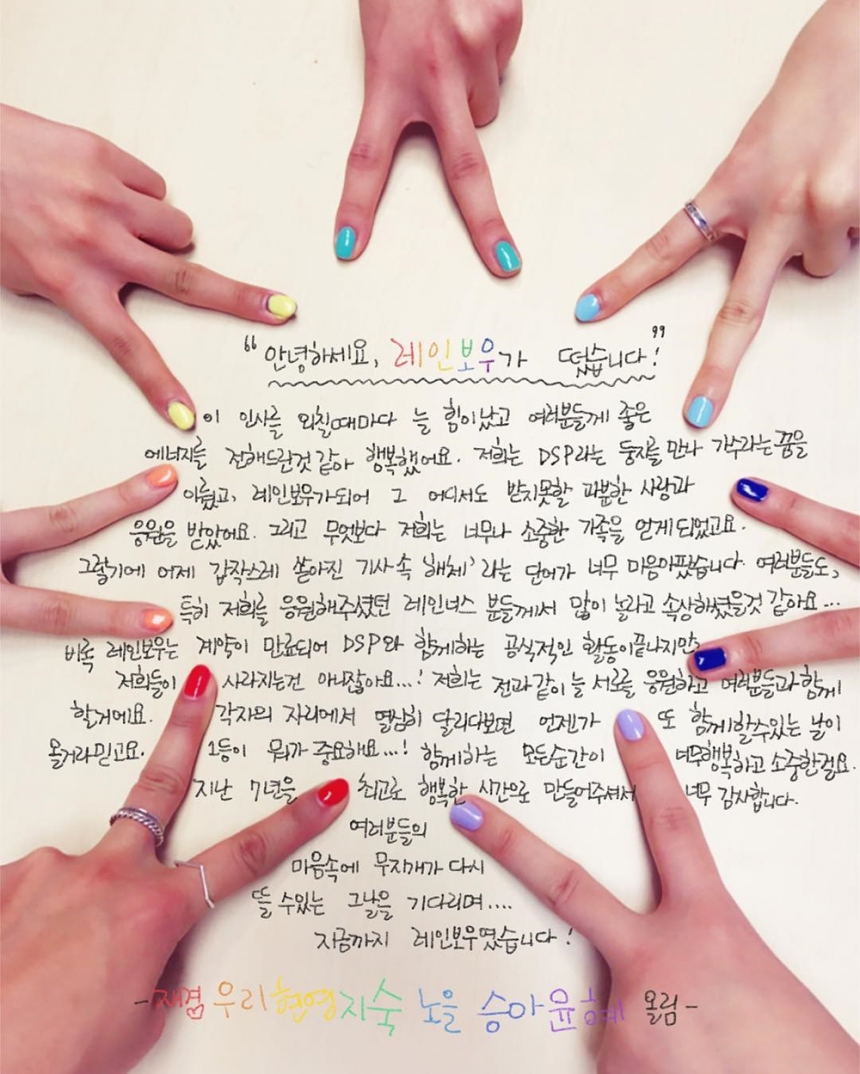 “안녕하세요, 레인보우가 떴습니다!”
이 인사를 외칠때마다 늘 힘이났고 여러분들께 좋은
에너지를 전해드린것 같아 행복했어요. 저희는 DSP라는 둥지를 만나 가수라는 꿈을
이뤘고, 레인보우가되어 그 어디서도 받지못할 과분한 사랑과
응원을 받았어요. 그리고 무엇보다 저희는 너무나 소중한 가족을 얻게되었고요.
그렇기에 어제 갑작스레 쏟아진 기사속 '해체'라는 단어가 너무 마음아팠습니다. 여러분들도,
특히 저희를 응원해주셨던 레인너스 분들께서 많이 놀라고 속상하셨을것 같아요...
비록 레인보우는 계약이 만료되어 DSP와 함께하는 공식적인 활동이끝나지만,
저희들이 사라지는건 아니잖아요...! 저희는 전과같이 늘 서로를 응원하고 여러분들과 함께
할거에요. 각자의 자리에서 열심히 달리다보면 언젠가 또 함께할수있는 날이
올거라믿고요. 1등이 뭐가 중요해요...! 함께하는 모든순간이 너무행복하고 소중한걸요.
지난 7년을 최고로 행복한 시간으로 만들어주셔서 너무 감사합니다.
여러분들의
마음속에 무지개가 다시
뜰 수있는 그날을 기다리며....
지금까지 레인보우였습니다!
-재경 우리 현영 지숙 노을 승아 윤혜 올림-